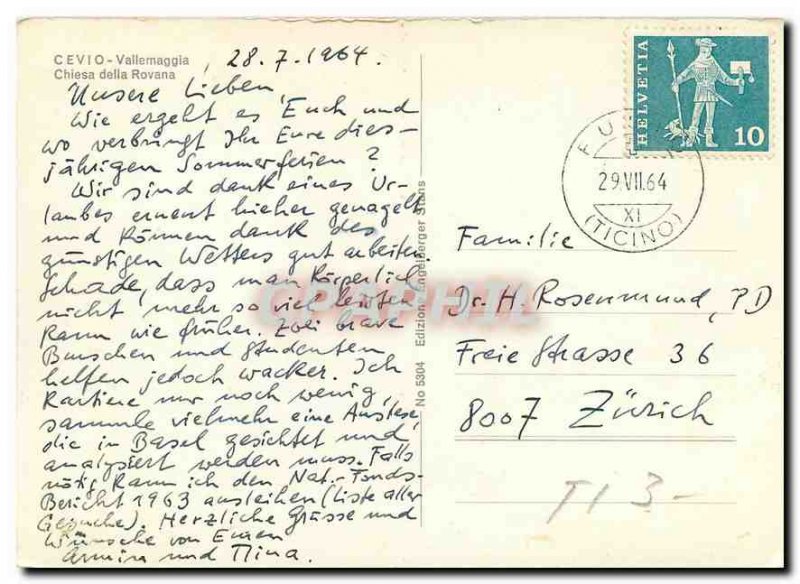 CEVIO - Vallemaggia
Chiesa della Rovana
28.7.1964.
Unsere Lieben,
Wie ergeht es Euch und
wo verbringt Ihr Eure dies-
jährigen Sommerferien?
Wir sind dank eines Ur-
laubes erneut hieher genagelt
und können dank des
günstigen Wetters gut arbeiten.
Schade, dass man körperlich
nicht mehr so viel leisten
kann wie früher. Zwei brave
Burschen und Studenten
helfen jedoch wacker. Ich
kartiere nur noch wenig,
sammle vielmehr eine Auslese,
die in Basel gesichtet und
analysiert werden muss. Falls
nötig kann ich den Nat.-Fonds-
Bericht 1963 ausleihen (Liste aller
Gesuche). Herzliche Grüsse und
Wünsche von Euren
und
No 5304 Edizioni Engelberger Stans
HELVETIA
10
FU
29.VII.64
XI
(TICINO)
Familie
Dr. H. Rosenmund, PD
Freie Strasse 36
8007 Zürich
TI 3-